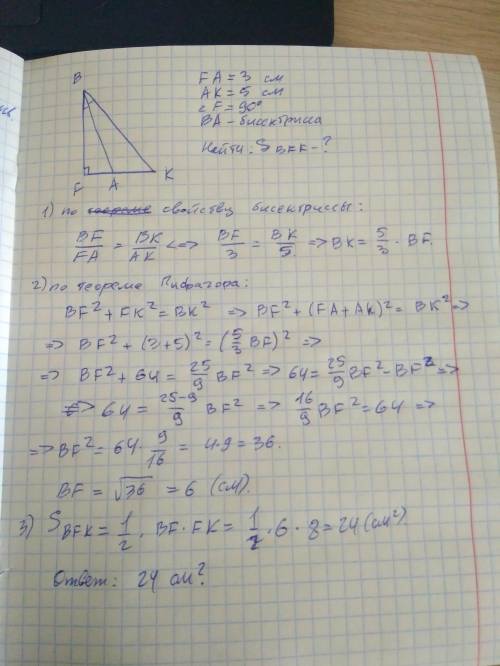 B
F A K
FA = 3 см
AK = 5 см
∠F = 90°
BA - бисектриса
Найти: S BFK - ?
1) по свойству бисектриссы:
BF/FA = BK/AK <=> BF/3 = BK/5 => BK = 5/3 · BF.
2) по теореме Пифагора:
BF² + FK² = BK² => BF² + (FA + AK)² = BK² =>
=> BF² + (3+5)² = (5/3 BF)² =>
=> BF² + 64 = 25/9 BF² => 64 = 25/9 BF² - BF² =>
=> 64 = 25-9/9 BF² => 16/9 BF² = 64 =>
=> BF² = 64 · 9/16 = 4·9 = 36.
BF = √36 = 6 (см).
3) S BFK = 1/2 · BF · FK = 1/2 · 6 · 8 = 24 (см²)
Ответ: 24 см².